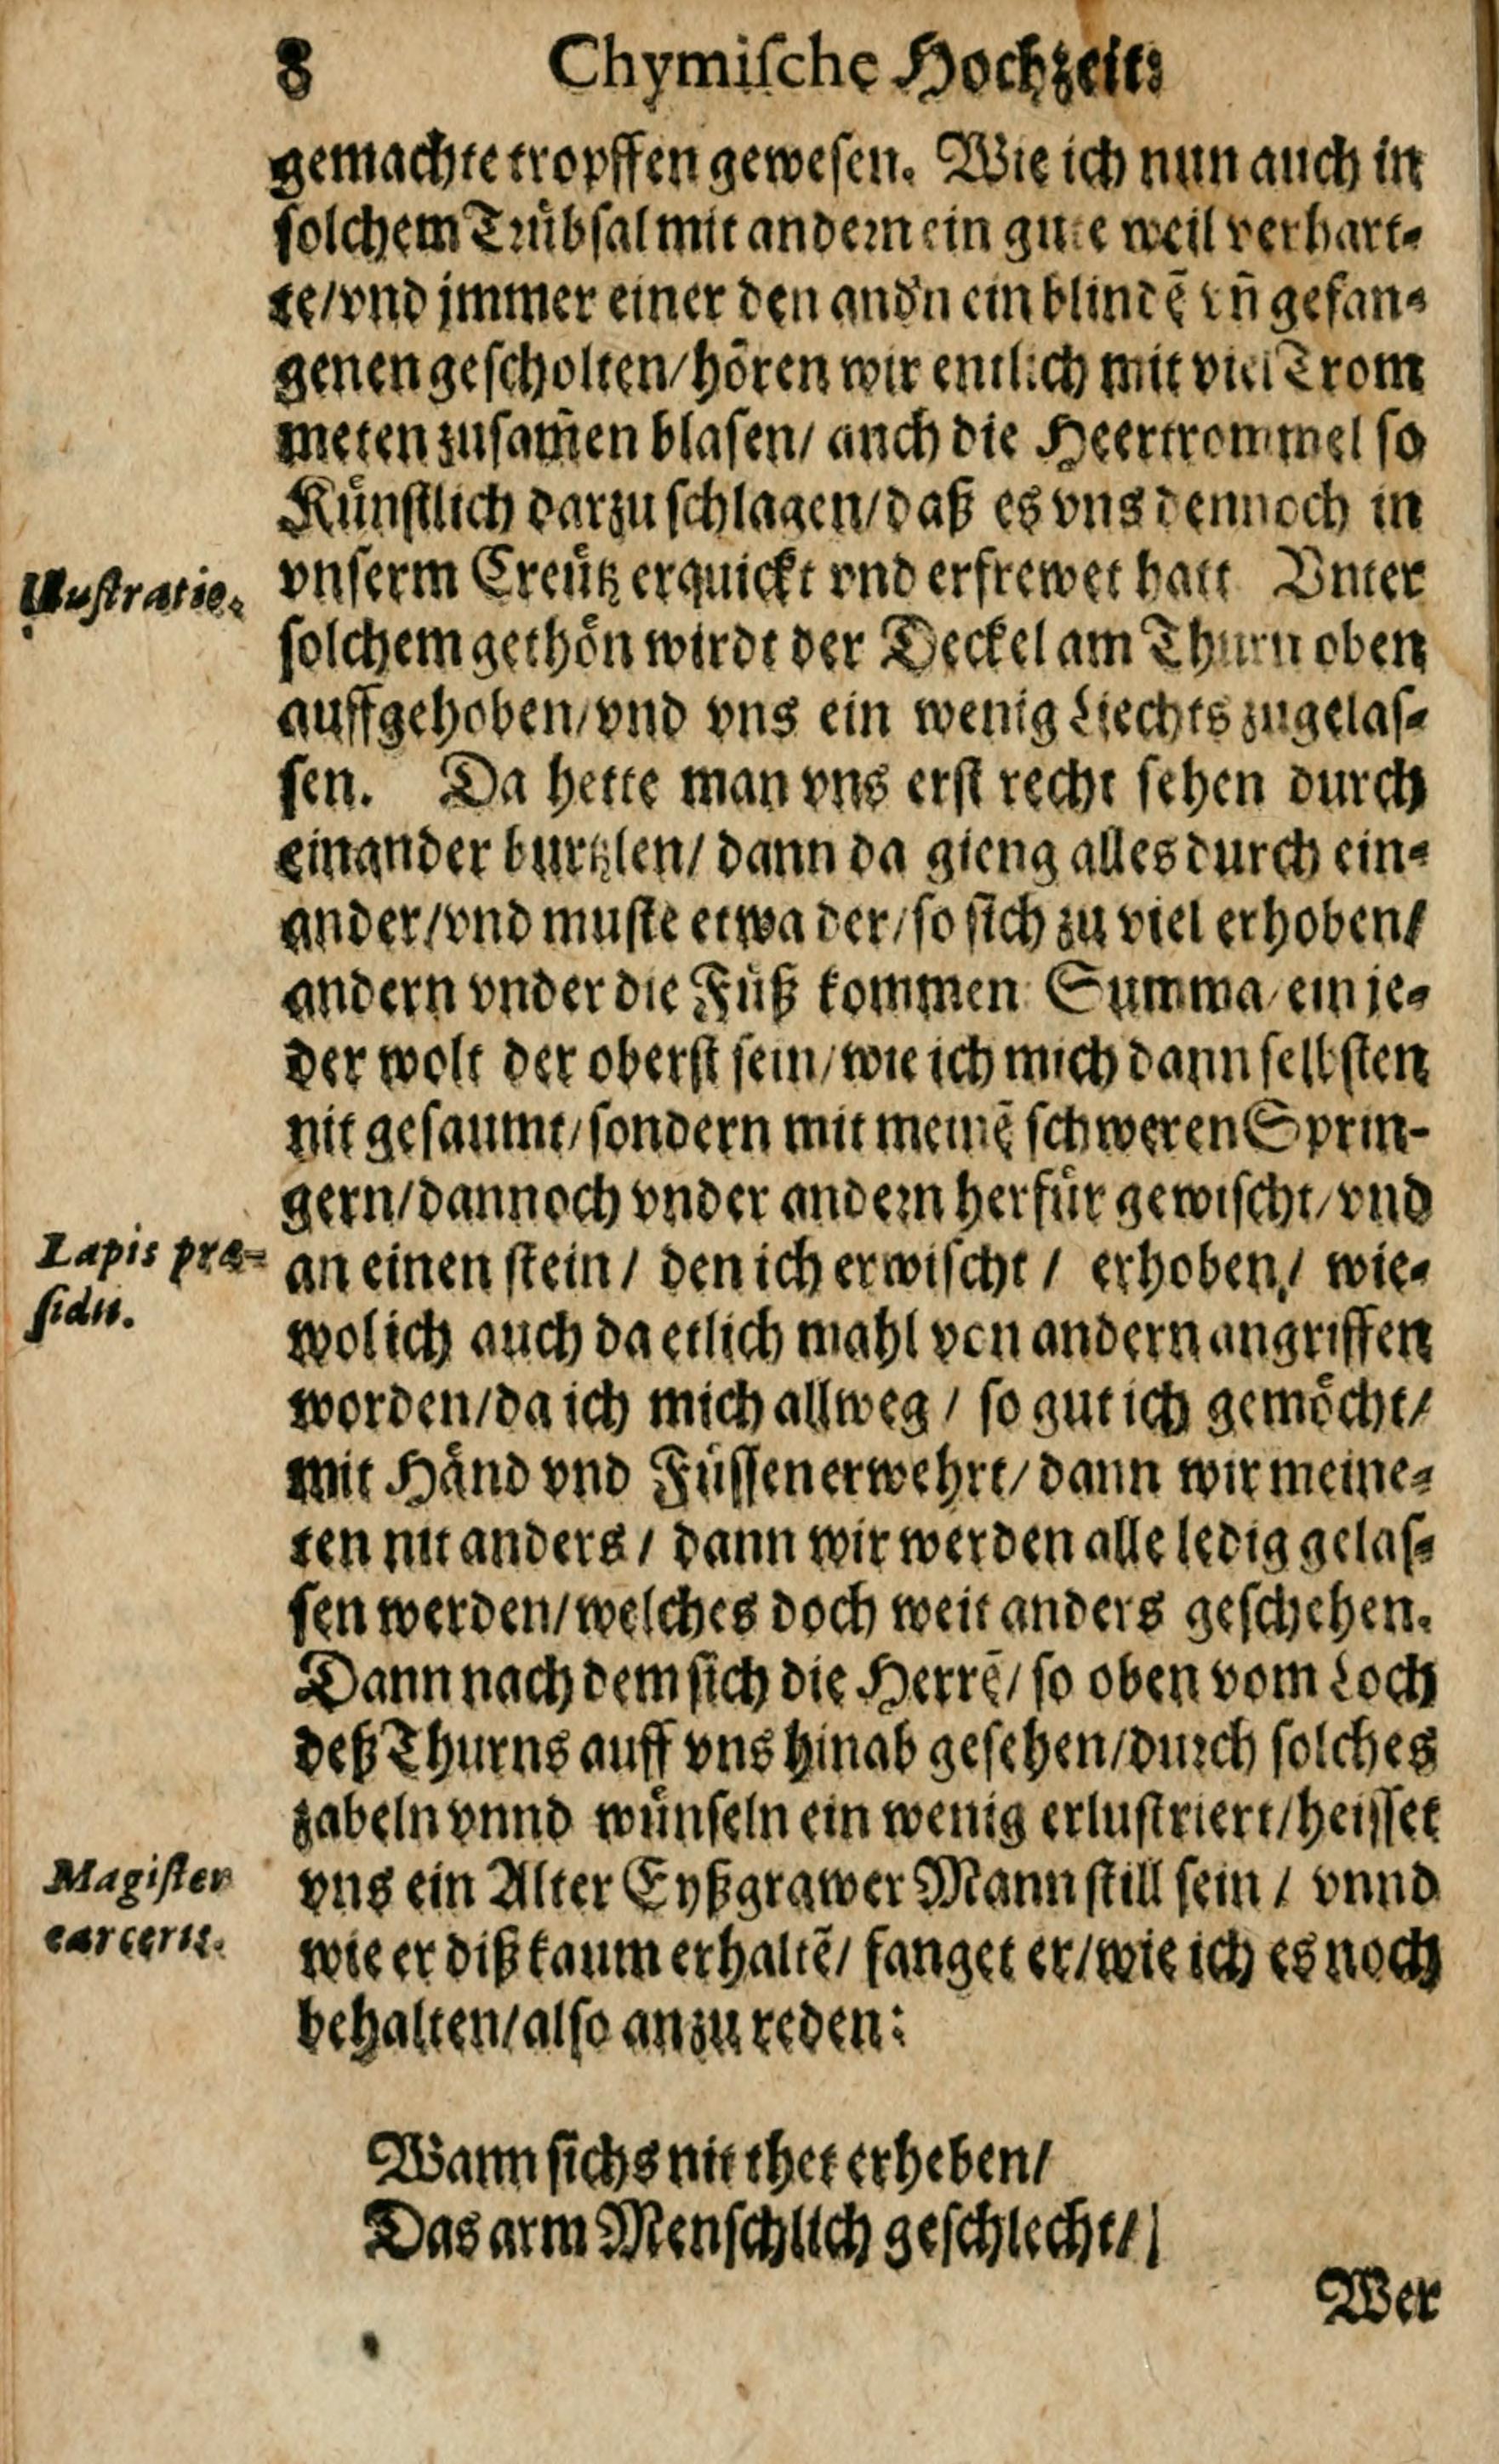 8 Chymiſche Hochzeit:
gemachte tropffen geweſen. Wie ich nun auch in
ſolchem Truͤbſal mit andern ein gute weil verhart⸗
te/vnd jmmer einer den andn̄ ein blindē vn̄ gefan⸗
genen geſcholten/hoͤren wir entlich mit viel Trom
meten zuſam̄en blaſen/ auch die Heertrommel ſo
Kuͤnſtlich darzu ſchlagen/daß es vns dennoch in
Illuſtratio.
vnſerm Creuͤtz erquickt vnd erfrewet hatt Vnter
ſolchem gethoͤn wirdt der Deckel am Thurn oben
auffgehoben/vnd vns ein wenig Liechts zugelaſ⸗
ſen. Da hette man vns erſt recht ſehen durch
einander burtzlen/ dann da gieng alles durch ein⸗
ander/vnd muſte etwa der/ſo ſich zu viel erhoben/
andern vnder die Fuͤß kommen Summa/ein je⸗
der wolt der oberſt ſein/wie ich mich dann ſelbſten
nit geſaumt/ſondern mit meinē ſchweren Sprin-
gern/dannoch vnder andern herfuͤr gewiſcht/vnd
Lapis præ-
ſidii.
an einen ſtein/ den ich erwiſcht/ erhoben/ wie⸗
wol ich auch da etlich mahl von andern angriffen
worden/da ich mich allweg/ ſo gut ich gemoͤcht/
mit Haͤnd vnd Fuͤſſen erwehrt/dann wir meine⸗
ten nit anders/ dann wir werden alle ledig gelaſ⸗
ſen werden/welches doch weit anders geſchehen.
Dann nach dem ſich die Herrē/ ſo oben vom Loch
deß Thurns auff vns hinab geſehen/durch ſolches
zabeln vnnd wuͤnſeln ein wenig erluſtriert/heiſſet
Magiſter
carceris.
vns ein Alter Eyßgrawer Mann ſtill ſein/ vnnd
wie er diß kaum erhaltē/ fanget er/wie ich es noch
behalten/alſo an zu reden:
Wann ſichs nit thet erheben/
Das arm Menſchlich geſchlecht/
Wer